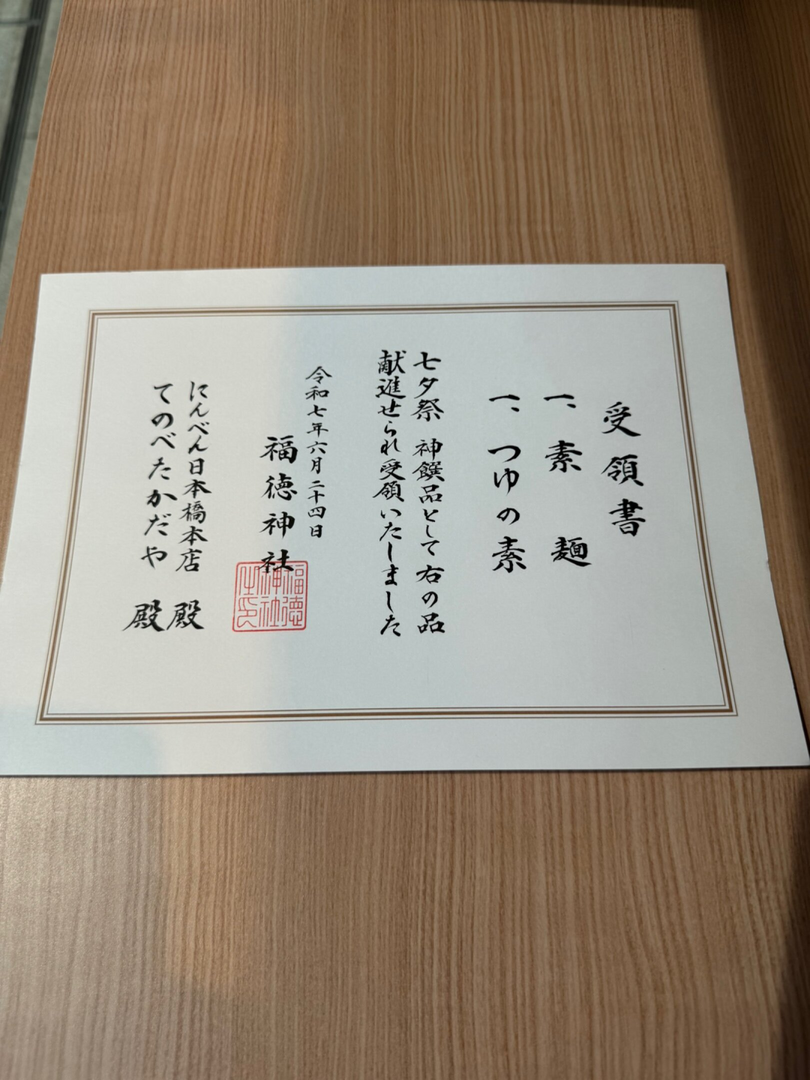 受領書
一、素麺
一、つゆの素
七夕祭 神饌品として右の品
献進せられ受領いたしました
令和七年六月二十四日
福徳神社
福徳神社之印
にんべん日本橋本店 殿
てのべたかだや 殿